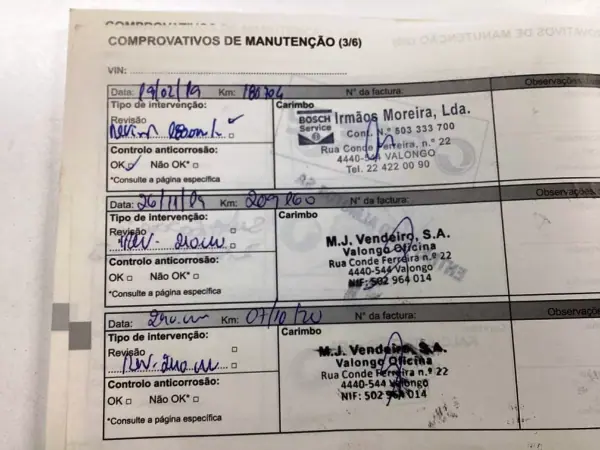 COMPROVATIVOS DE MANUTENÇÃO (3/6)
VIN:
Observações
Data: 19/02/19 Km: 180704 N° da factura:
Tipo de intervenção: Carimbo
Revisão
Controlo anticorrosão:
OK Não OK*
*Consulte a página específica
BOSCH Service
Irmãos Moreira, Lda.
Cont. N.º 503 333 700
Rua Conde Ferreira, n.º 22
4440-544 VALONGO
Tel. 22 422 00 90
Data: 26/11/19 Km: 209 860 N° da factura:
Observações
Tipo de intervenção: Carimbo
Revisão
Rev.
Controlo anticorrosão:
OK Não OK*
*Consulte a página específica
M.J. Vendeiro, S.A.
Valongo Oficina
Rua Conde Ferreira n.º 22
4440-544 Valongo
NIF: 502 964 014
Data: 240.000 Km: 07/10/20 N° da factura:
Observações
Tipo de intervenção: Carimbo
Revisão
Rev. 240.000
Controlo anticorrosão:
OK Não OK*
*Consulte a página específica
M.J. Vendeiro, S.A.
Valongo Oficina
Rua Conde Ferreira n.º 22
4440-544 Valongo
NIF: 502 964 014